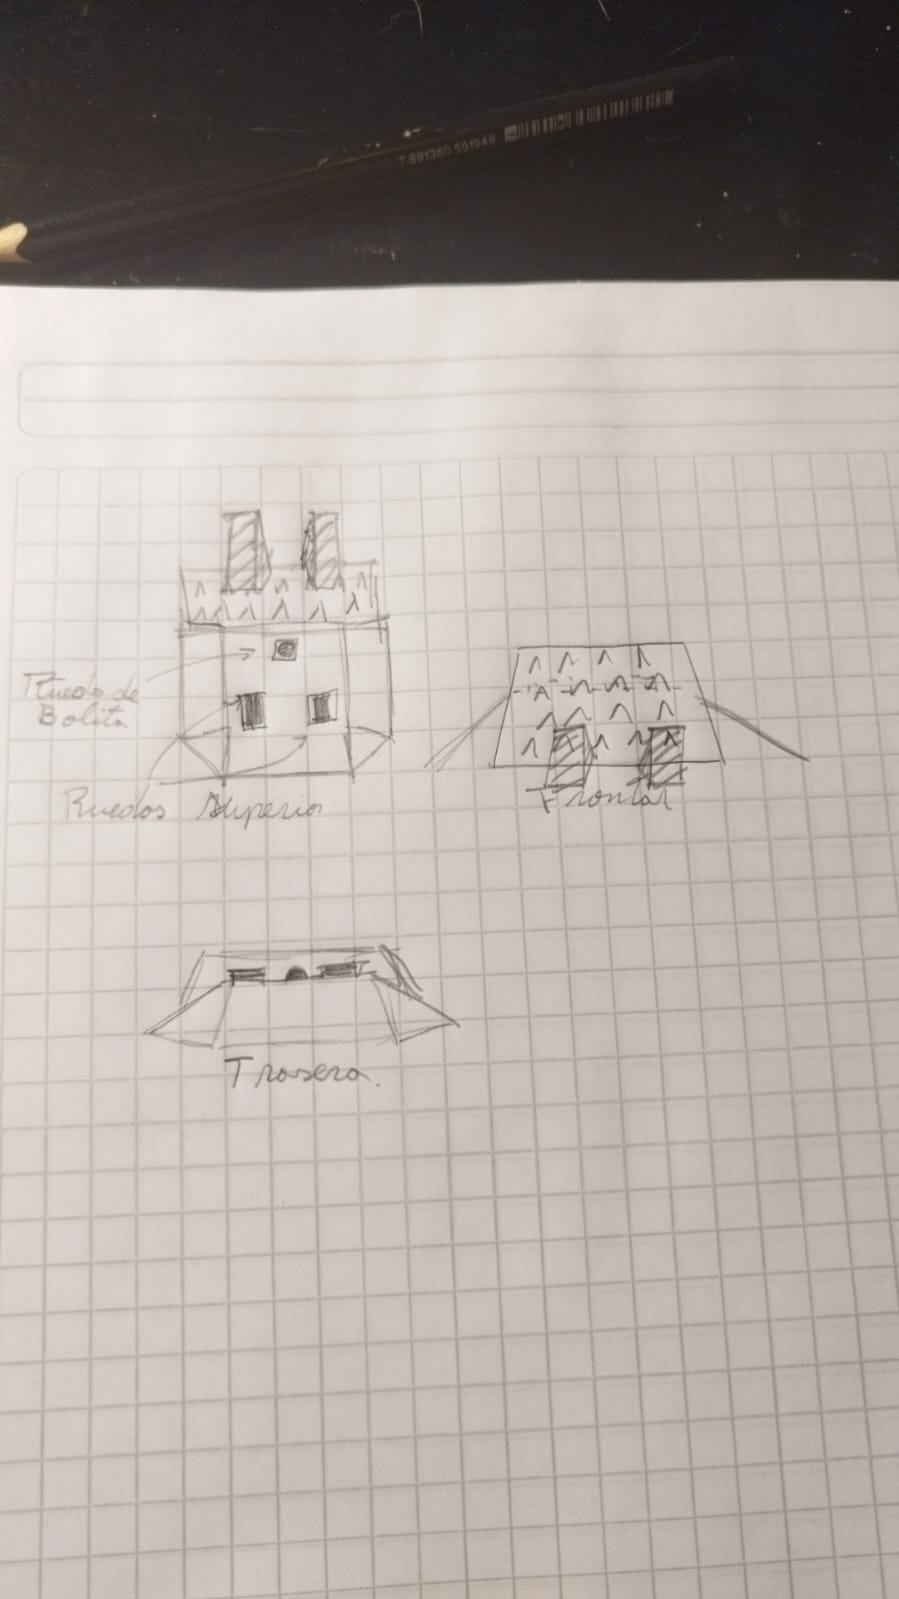 7 891360 591948
Rueda de
Bolita
Ruedas
Superior
Frontal
Trasera.